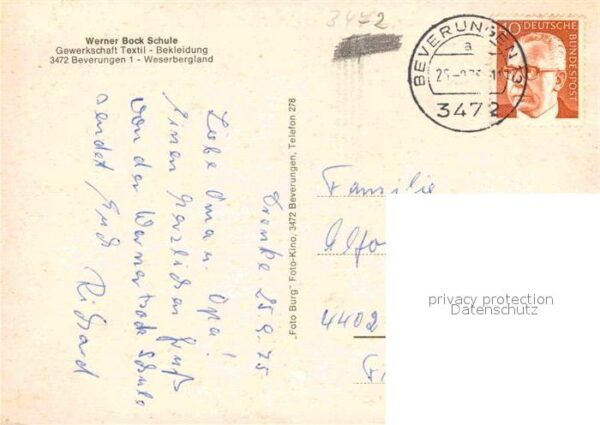 Werner Bock Schule
Gewerkschaft Textil - Bekleidung
3472 Beverungen 1 - Weserbergland
3472
BEVERUNGEN 1
a
3472
40 DEUTSCHE
BUNDESPOST
25.9.75
Liebe Oma u. Opa!
Einen herzlichen Gruß
von der Wernerbockschule
sendet Euch Richard
„Foto Burg" Foto-Kino, 3472 Beverungen, Telefon 278
Familie
4402
privacy protection
Datenschutz